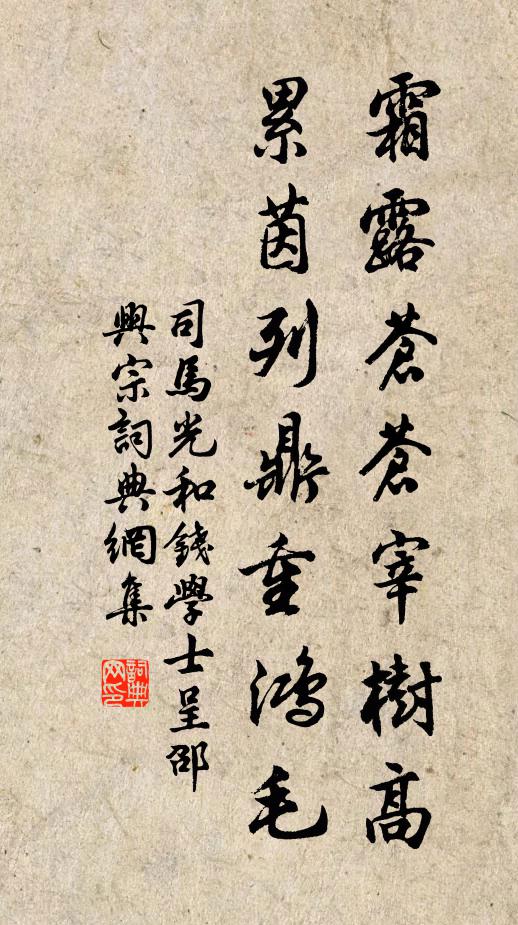 霜露蒼蒼宰樹高
累茵列鼎重鴻毛
司馬光和錢學士呈邵
興宗詞典網集
詞典網印